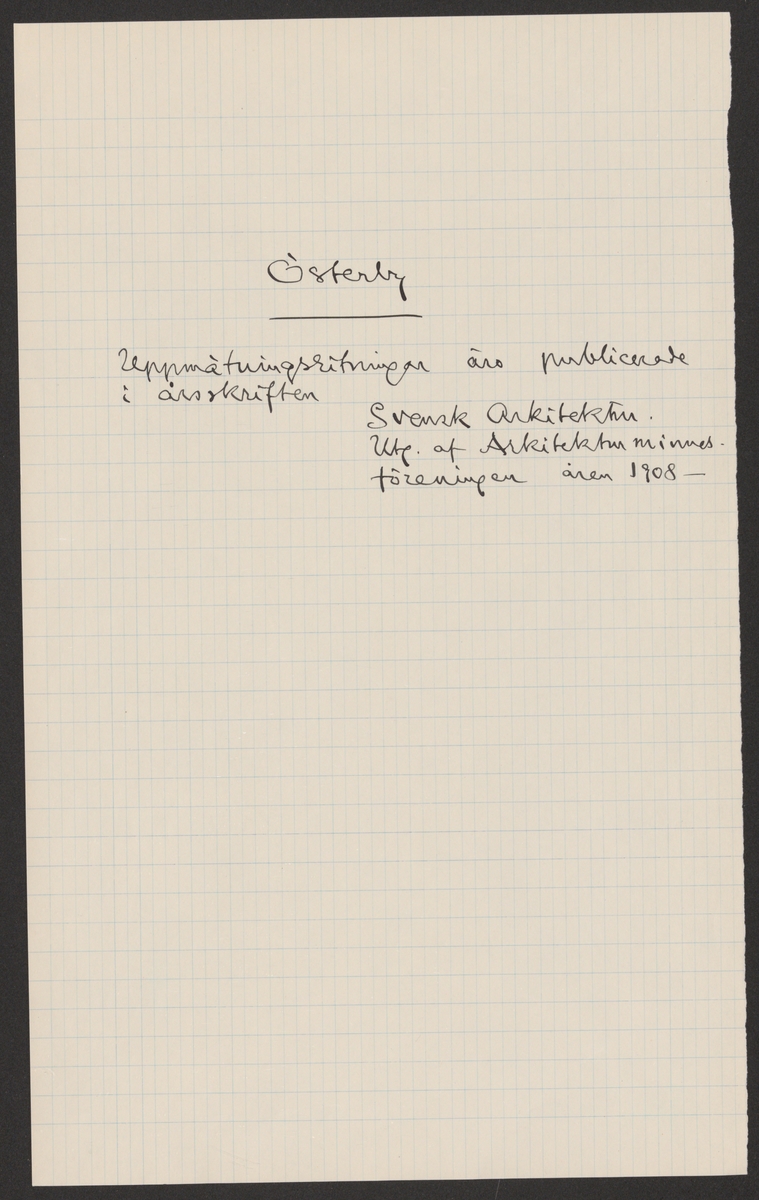 Österby
Uppmätningsritningar äro publicerade
i årsskriften
Svensk Arkitektur.
Utg. af Arkitekturminnes-
föreningen åren 1908 —